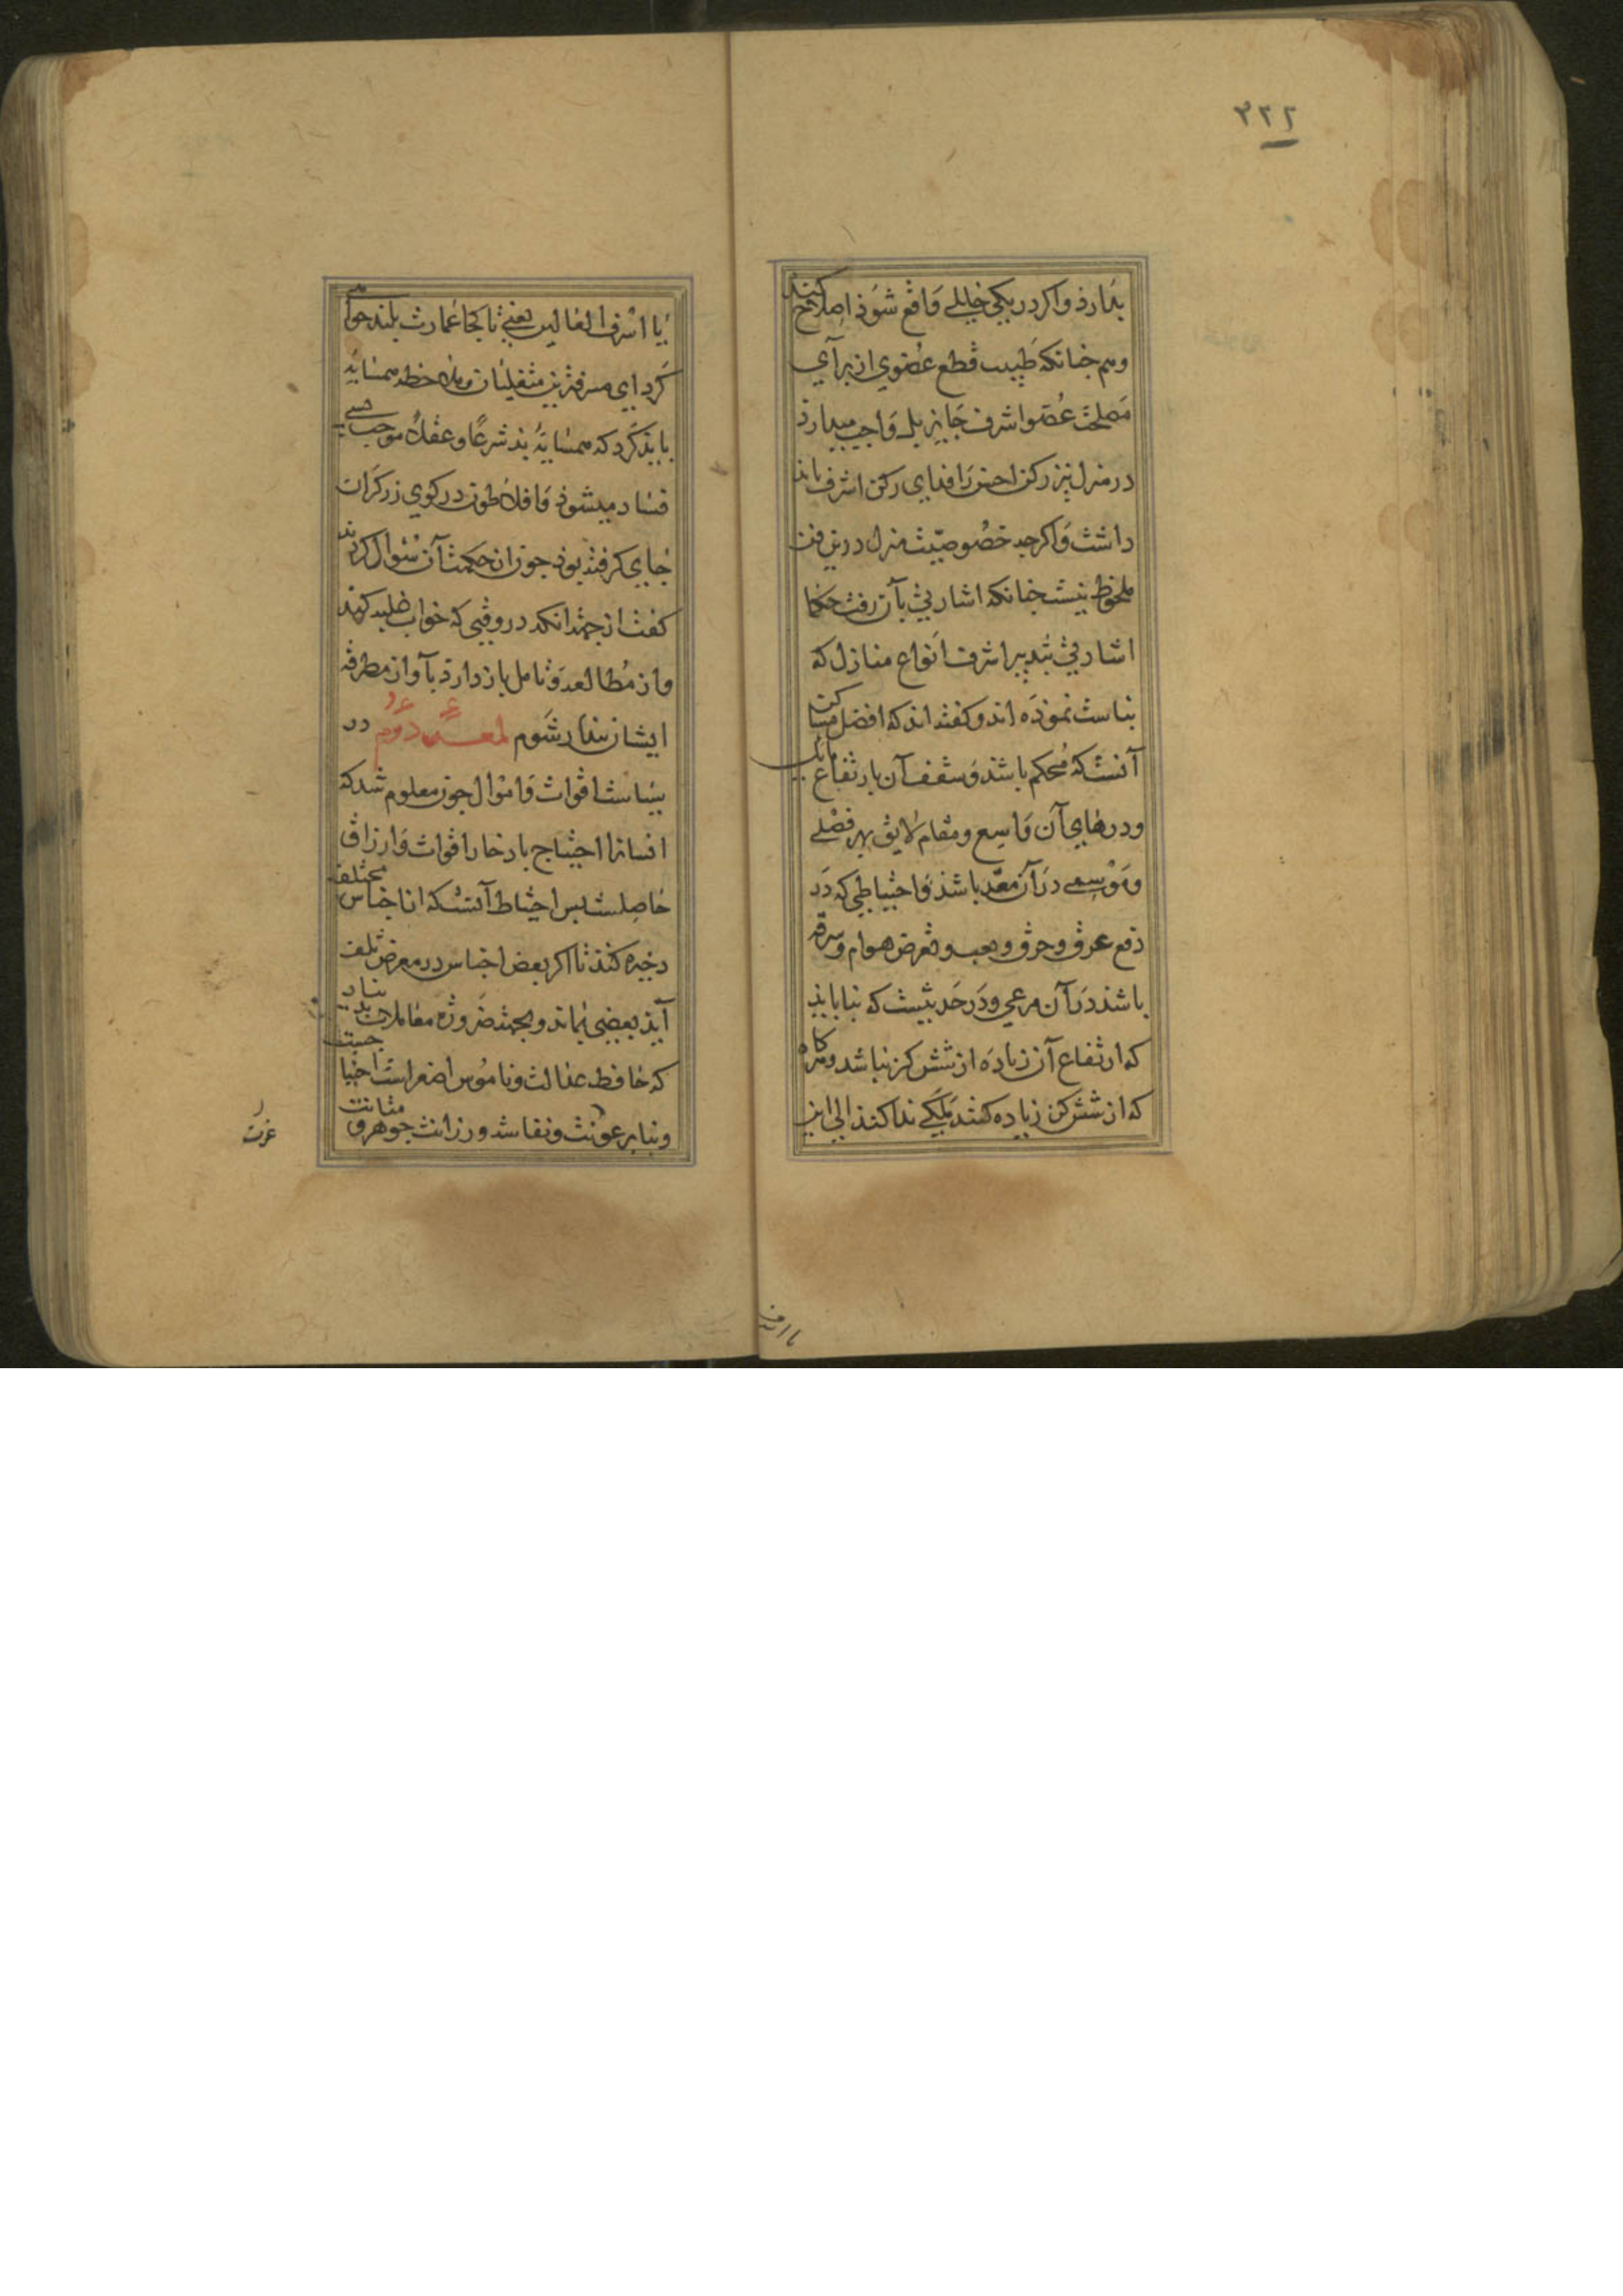 ۳۲۲
بدارذ واکر در یکی خللی واقع شوذ اصلاح کنند
وهم جنانکه طبیب قطع عضوی از برای
مصلحت عضو اشرف جایز بل واجب میدارذ
در منزل نیز رکن اخس را فدای رکن اشرف باید
داشت واکرجه خصوصیت منزل درین فن
ملحوظ نیست جنانکه اشارتی بآن رفت حکما
اشارتی بتدبیر اشرف انواع منازل که
بناست نموذه اند و کفته اند که افضل مساکن
آنست که محکم باشد و سقف آن بارتفاع مایل
ودرهای آن واسع ومقام لایق بهر فصلی
و موسمی در آن معد باشذ واحتیاطی که در
دفع غرق وحرق ونقب و تعرض هوام وسرقه
باشد در آن مرعی و در حدیثست که بنا باید
که ارتفاع آن زیاده از شش کز نباشد و هرکاه
که از شش کز زیاده کنند ملکی ندا کند الی این
یا اسرف
یا اسرف الغالین یعنی تا کجا عمارت بلند خواهی
کرد ای مسرفترین متغلبان و ملاحظه همسایه
باید کرد که همسایهٔ بد شرعا و عقلا موجب حسی
فساد میشوذ وافلاطون در کوی زرکران
جای کرفته بوذ جون از حکمت آن سؤال کردند
کفت از جهت انکه در وقتی که خواب غلبه کند
واز مطالعه و تامل باز دارد بآواز مطرقه
ایشان بیدار شوم لمعه دوم در
سیاست اقوات و اموال جون معلوم شد که
انسانرا احتیاج بادخار اقوات و ارزاق
حاصلست پس احتیاط آنست که از اجناس مختلفه
دخیره کنند تا اکر بعض اجناس در معرض تلف
آید بعضی بماند و بجهت ضرورة معاملات بدیناد
که حافظ عدالت و ناموس اصغر است احتیا جست
و بنابر عونت و نفاست و رزانت جوهر و متانت
عزت